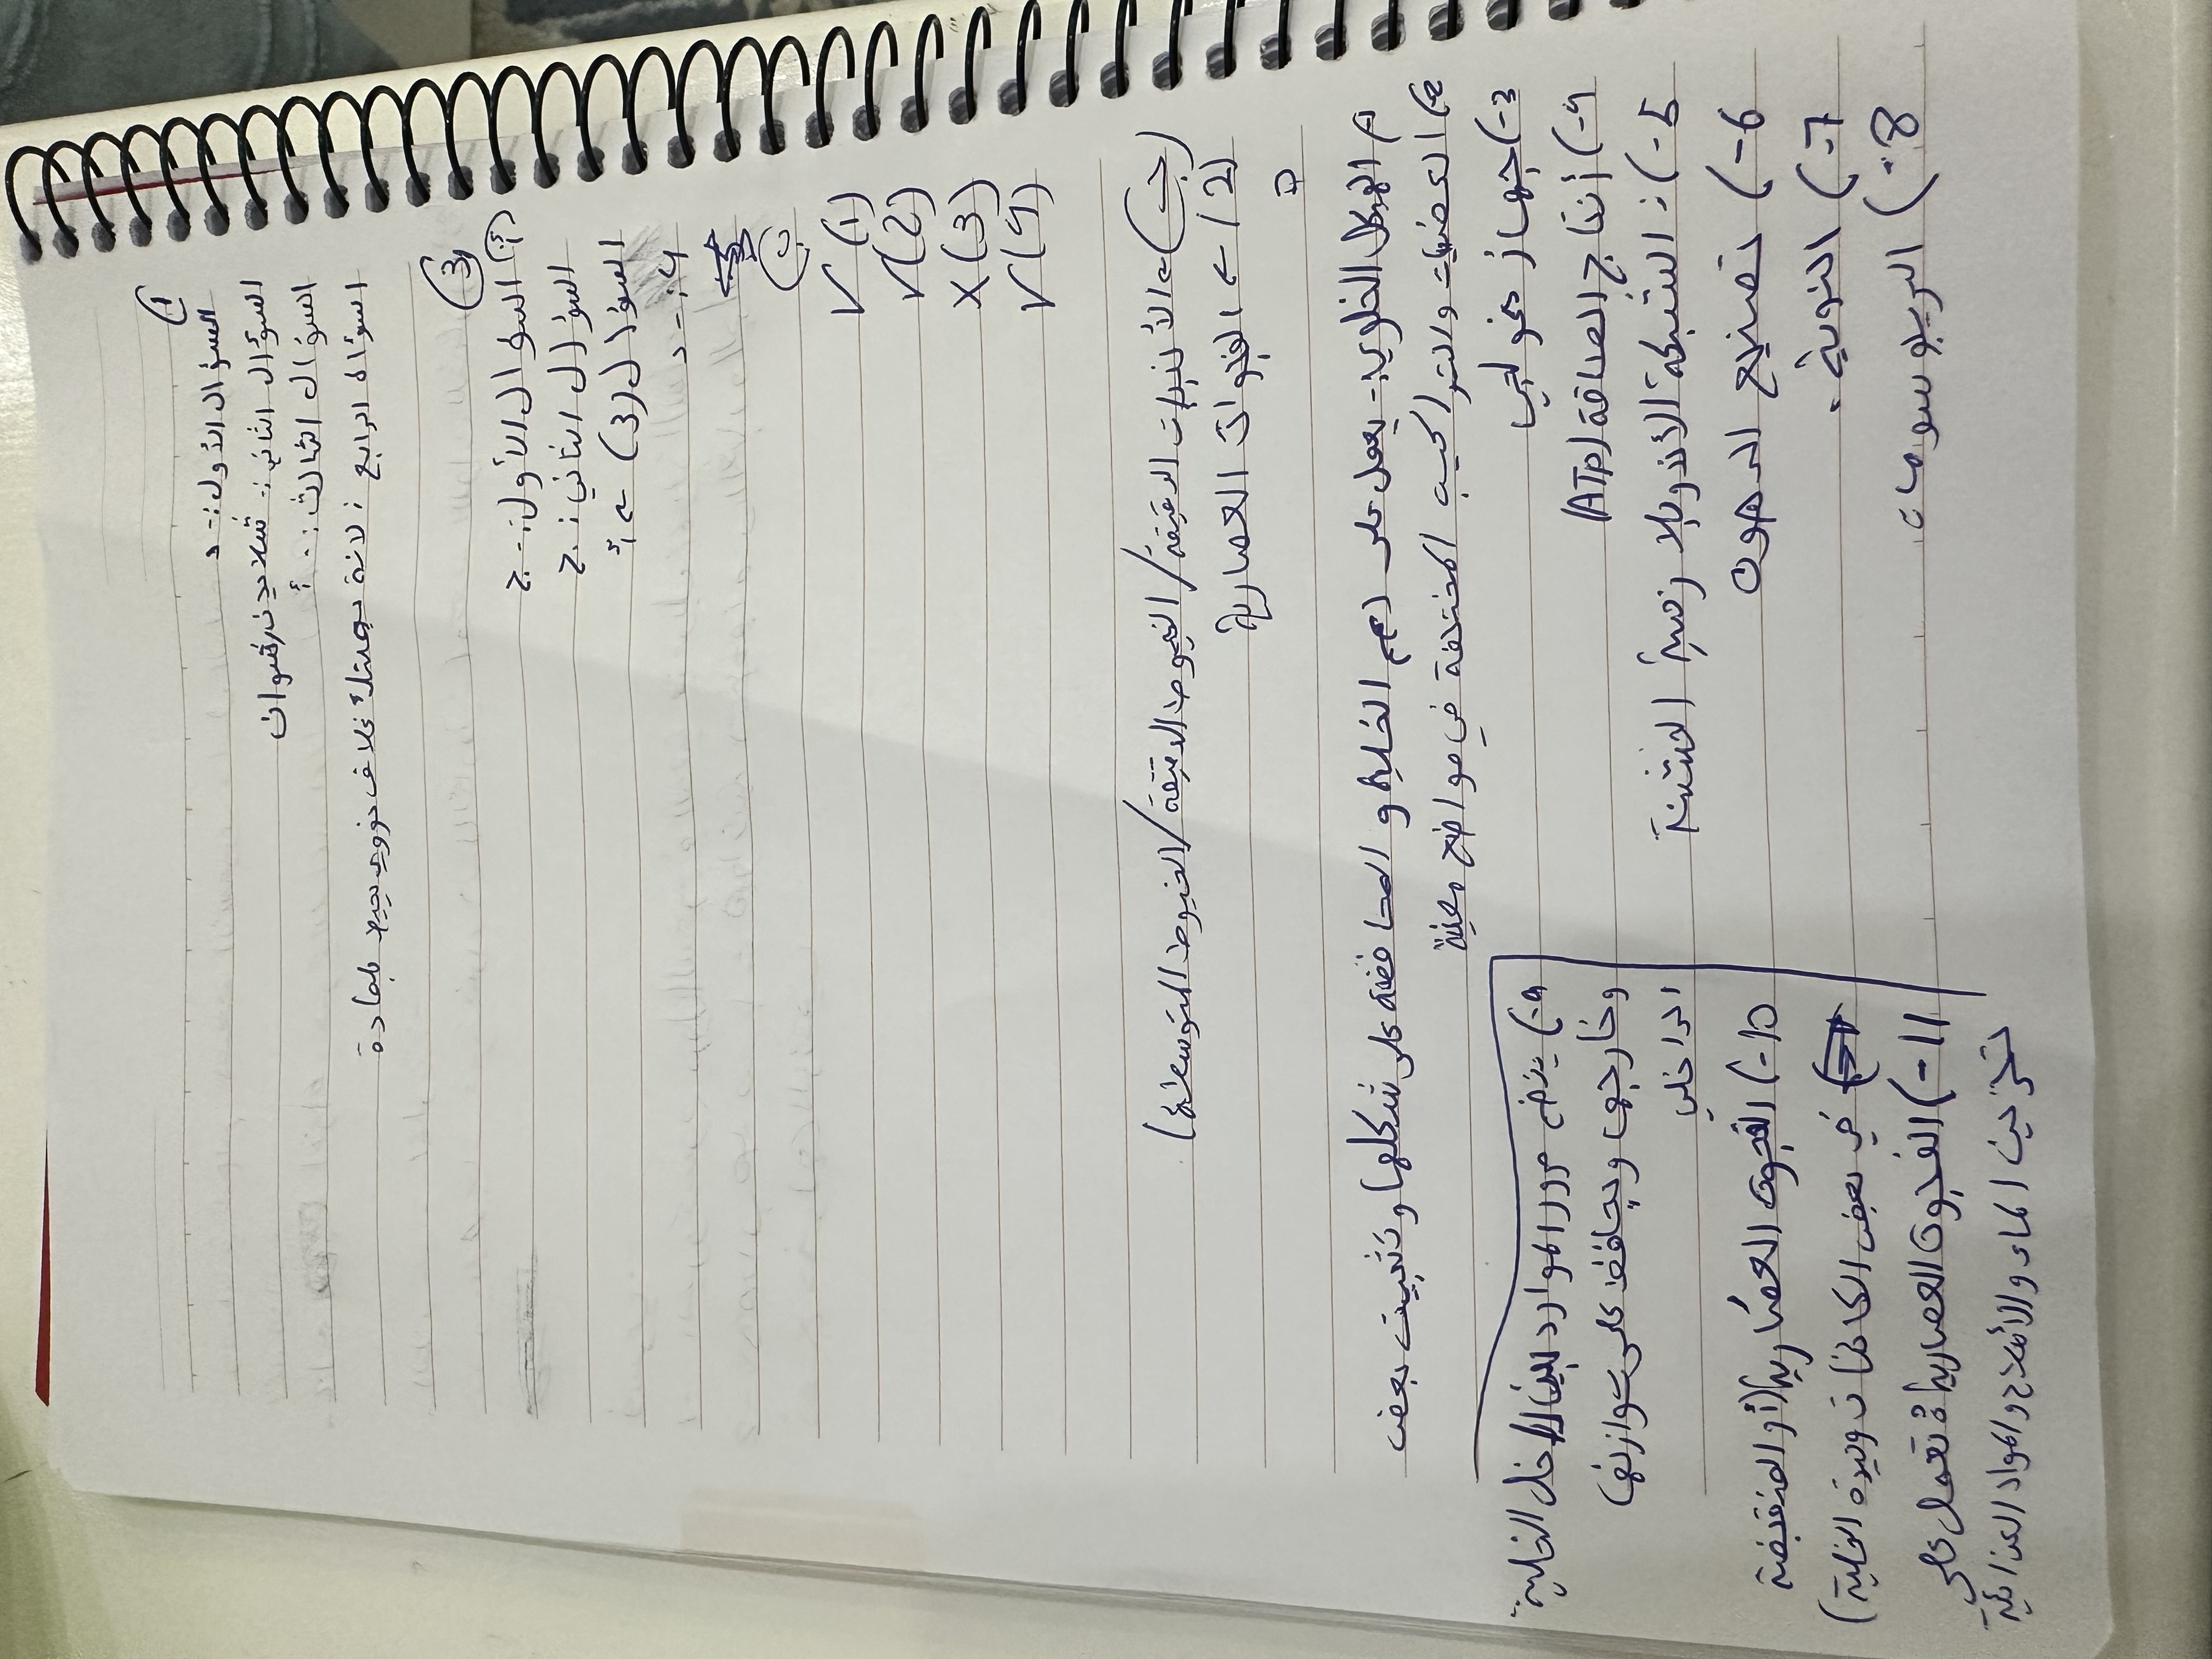 (1
السؤال الأول:- د
السؤال الثاني:- شلايدن/شوان
السؤال الثالث:- أ
السؤال الرابع: لانة يمتلك غلاف نووي يحيط بلمادة
(3
(أ) السؤال الأول:- ج
السؤال الثاني:- ج
السؤال (3) ← أ
4:- د
(ب
(1) ✓
(2) ✓
(3) X
(4) ✓
(ج) ← الأنيبيبات الدقيقة/ الخيوط الدقيقة/ الخيوط المتوسطة).
(2) ← الفجوات العصارية
م الهيكل الخلوي:- يعمل على دعم الخلية و المحافظه على شكلها و تثبيت بعض
العضيات والتراكيب المختلفة في مواضع معينة
3-) جهاز غولجي
4-) أنتاج الطاقة (ATP)
5-): الشبكة الأندوبلازمية الخشنة
6-) تصنيع الدهون
7-) النوية.
8-) الريبوسومات
9-) ينضم مرور المواد بين داخل الخلية
وخارجها ويحافظ على توازنها
الداخلي
10-) الفجوت العصارية (أو المنقبضة
في بعض الكائنات وحيدة الخلية)
11-) الفجوت العصارية تعمل على
تخزين الماء والأملاح والمواد الغذائية